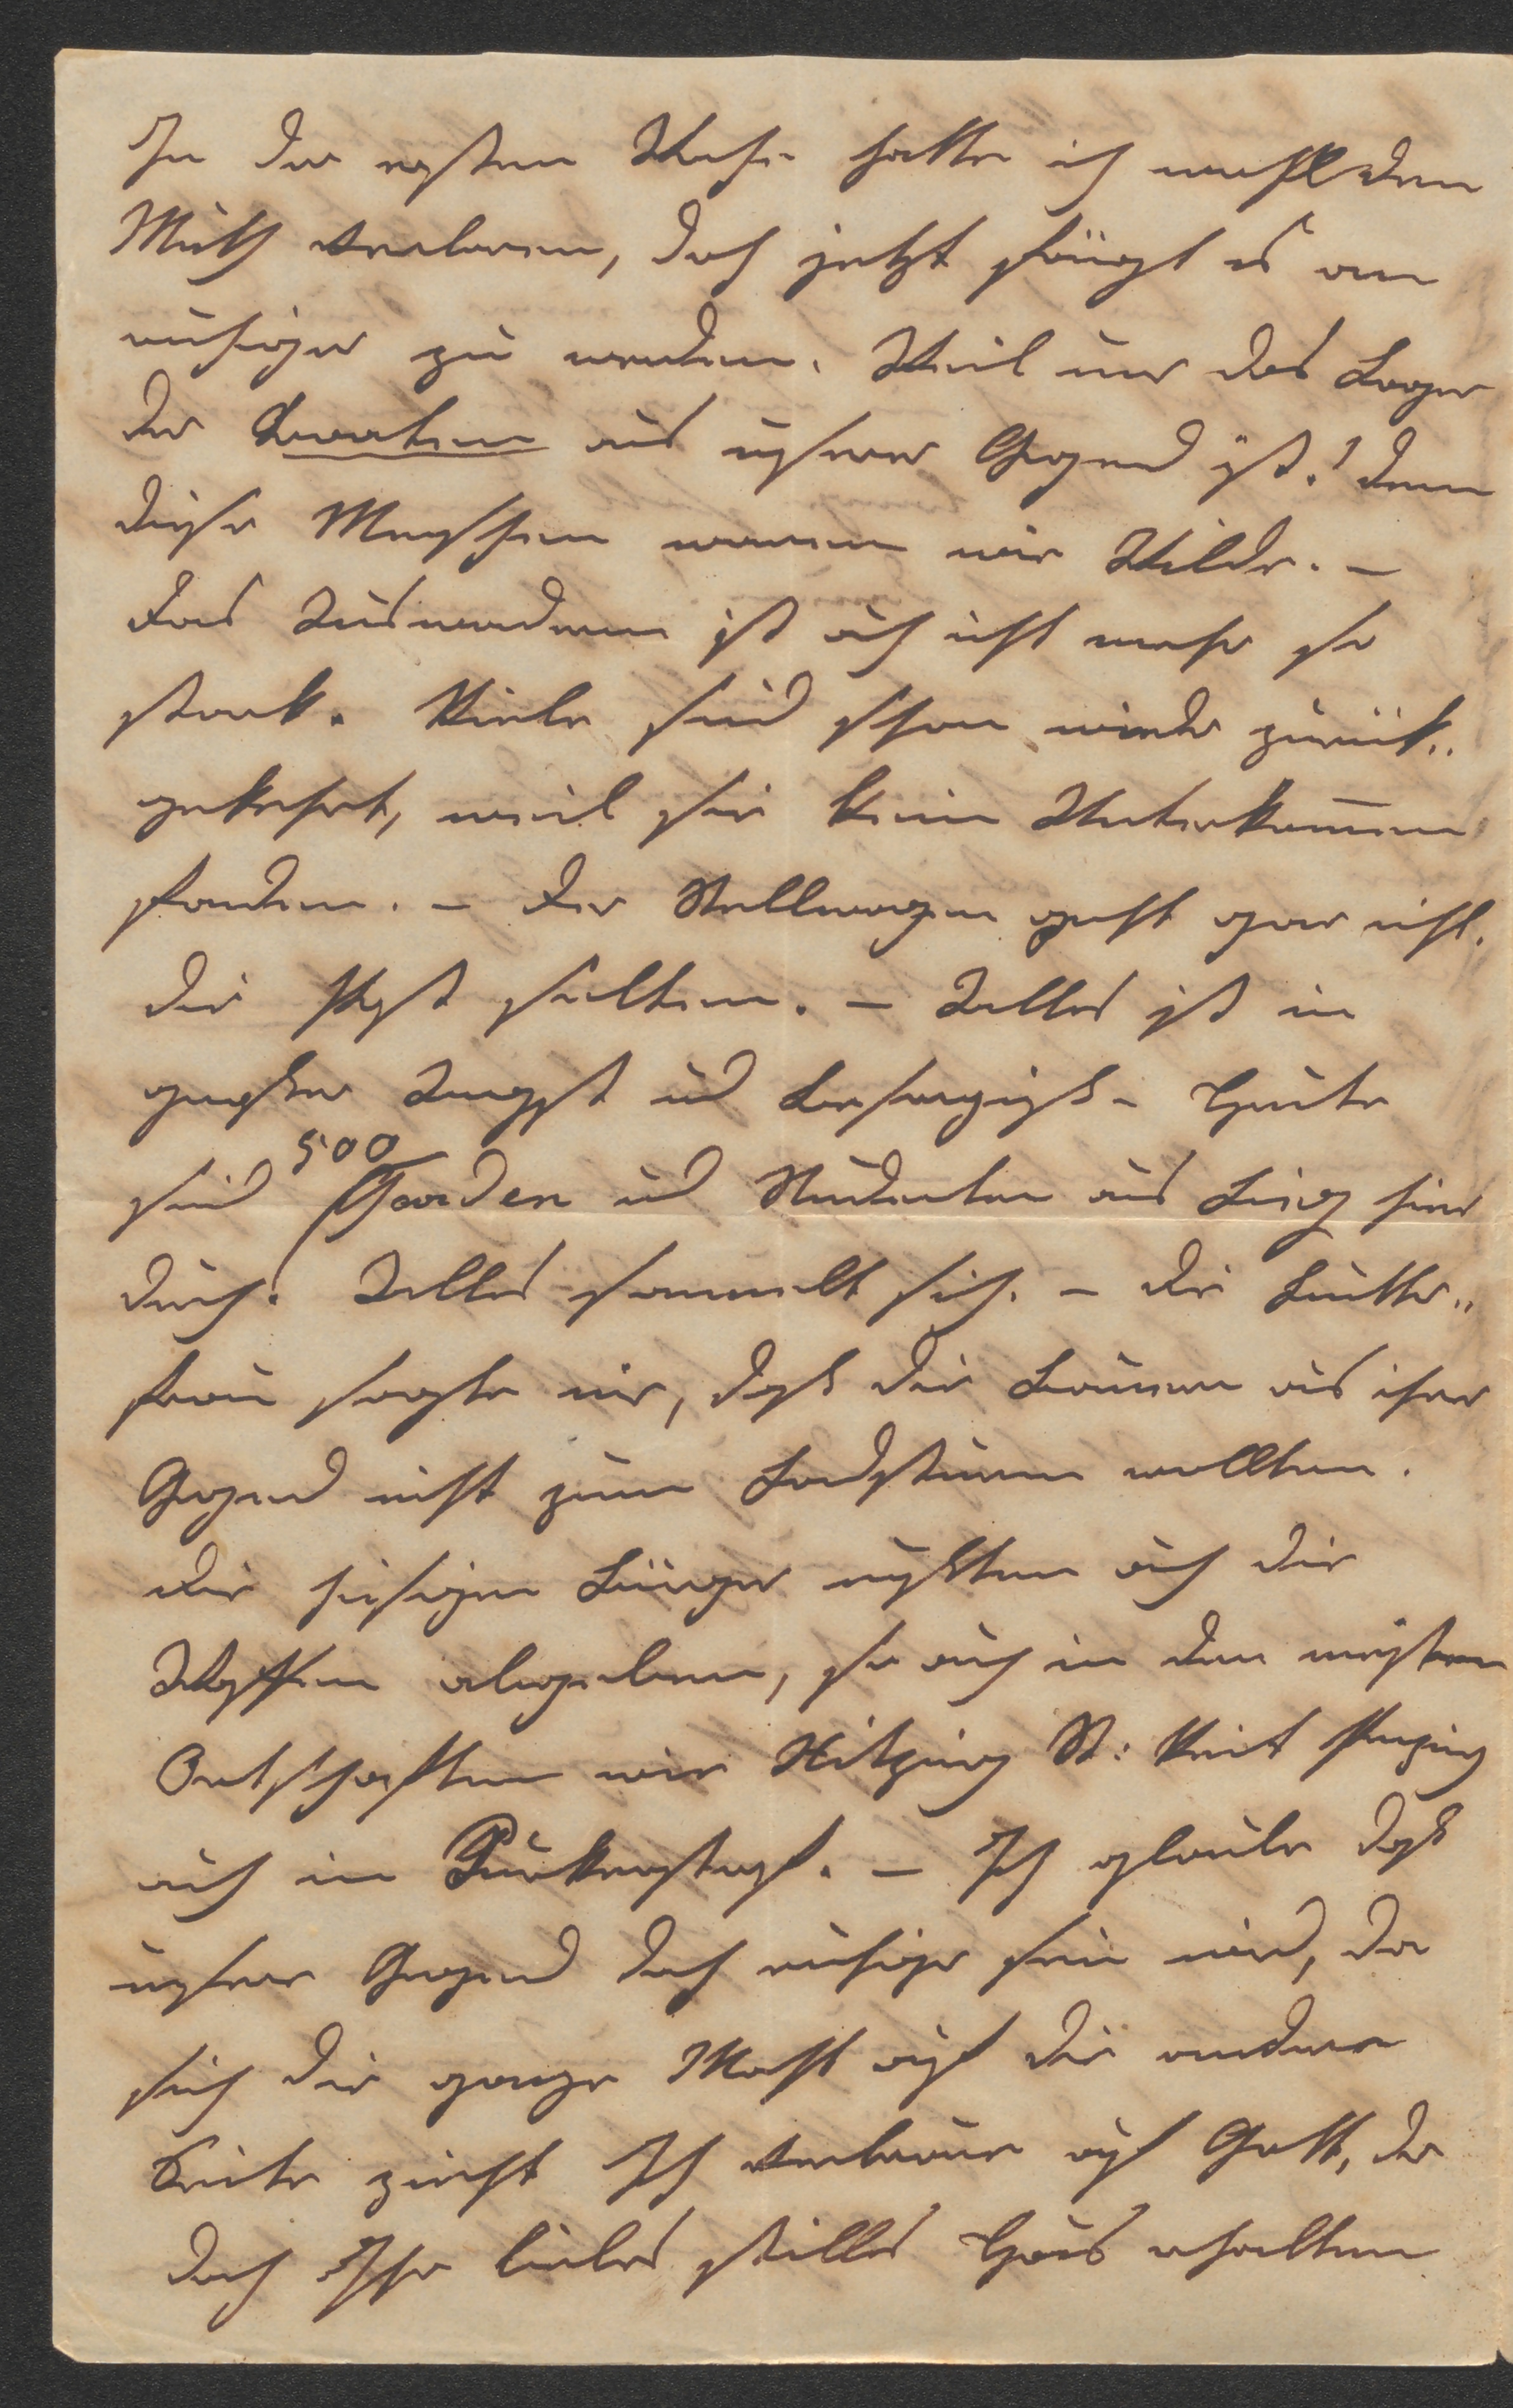 In der ersten Woche hatte ich wohl den
Muth verloren, doch jetzt fängt es an
ruhiger zu werden. Weil nur das Lager
der Kroaten aus unserer Gegend ist! denn
diese Menschen waren wie Wilde. –
Das Auswandern ist auch nicht mehr so
stark. Viele sind schon wieder zurück„
gekehrt, weil sie kein Unterkom̄en
fanden. – Der Stellwagen geht gar nicht.
die Post selten. – Alles ist in
großer Angst und Besorgniß – Heute
sind 500 Garden und Studenten aus Linz hier
durch. Alles sammelt sich. – Die Butter„
frau sagte mir, daß die Bauern aus ihrer
Gegend nicht zum Landsturm wollten.
Die hiesigen Bürger mußten auch die
Waffen abgeben, so auch in den meisten
Ortschaften wie Hitzing St: Veit Penzing
auch in Purkerstorf. – Ich glaube daß
unsere Gegend doch ruhiger sein wird, da
sich die ganze Macht auf die andere
Seite zieht Ich vertraue auf Gott, der
doch Ihr liebes stilles Haus erhalten